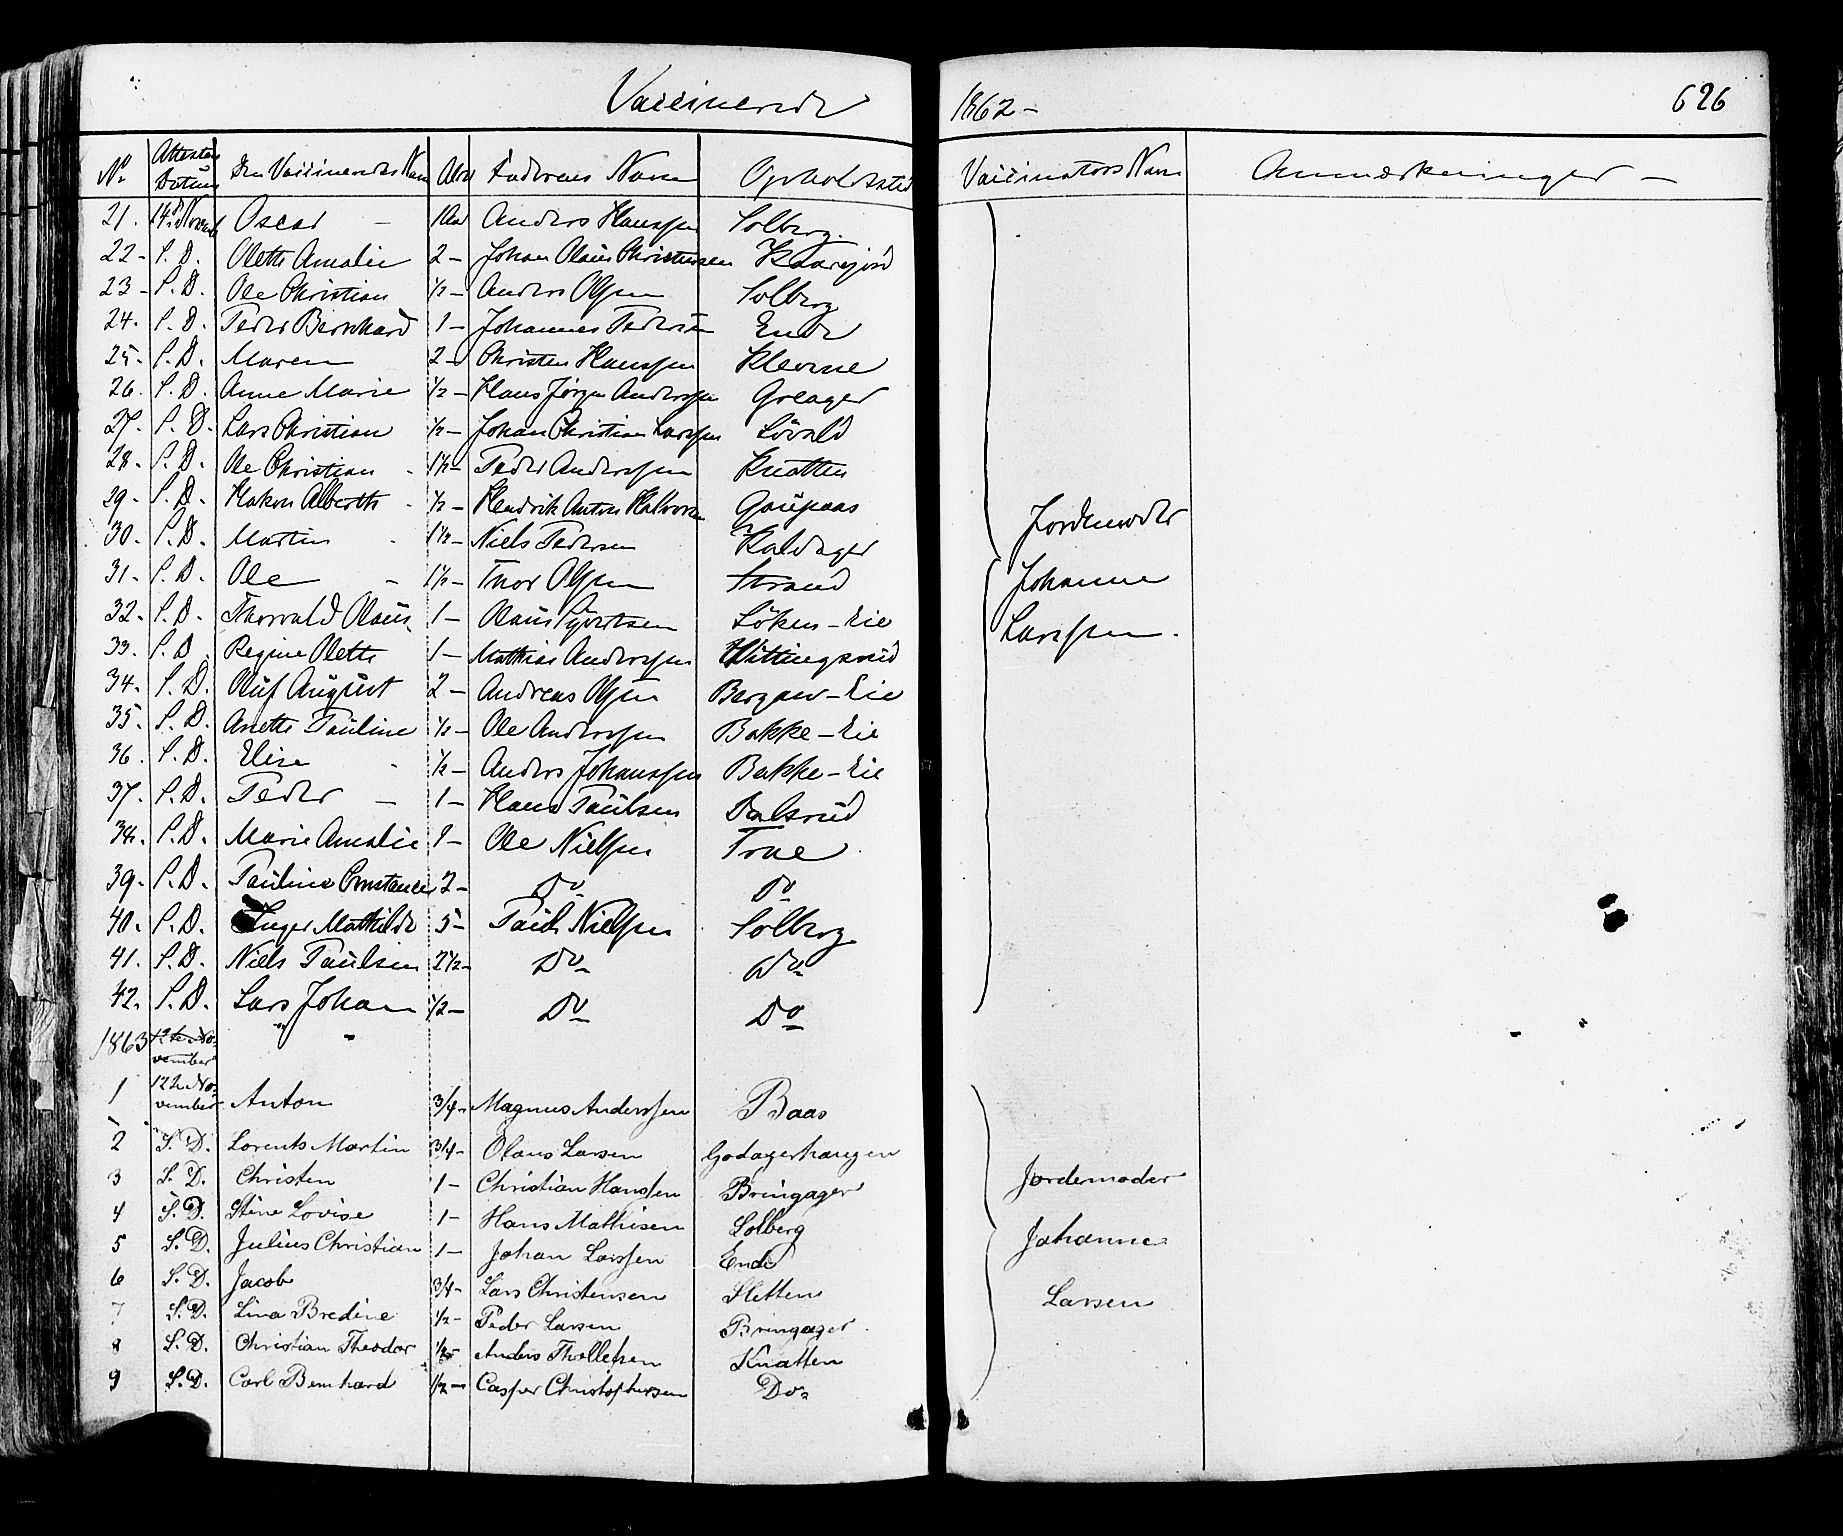 Vaccinerede 1862 – 626
No Attestens Datum Den Vaccineredes Navn Alder Faderens Navn Opholdssted Vaccinators Navn Anmærkninger –
21. 14de Novemb Oscar – 1 Aar Anders Hanssen Solberg.
22 - S. D. Olette Amalie 2 – Johan Olaus Christensen
23 - S. D. Ole Christian ½ – Anders Olsen Solberg
24. S. D. Peder Bernhard 1 – Johannes Pedersen Ende
25 - S. D. Maren 2 – Christen Hanssen Klevene
26. S. D. Anne Marie ½ – Hans Jørgen Anderssen
27. S. D. Lars Christian ½ – Johan Christian Larssen Lövald
28. S. D. Ole Christian 1½ – Peder Anderssen Knatten
29. S. D. Hakon Alberth ½ – Hendrik Anton Halvorsen Gaupaas
Jordemoder
30. S. D. Martin 1½ – Niels Pedersen Kaldager
31. S. D. Ole – 1½ – Thor Olsen Strand
Johanne
32. S. D. Thorvald Olaus 1 – Olaus Syvertsen Löken – Eie
Larssen.
33. S. D. Regine Olette 1 – Mathias Anderssen Hittingsrud
34. S. D. Oluf August 2 – Andreas Olsen Bergen – Eie
35. S. D. Anette Pauline ½ – Ole Anderssen Bakke – Eie
36. S. D. Elise ½ – Anders Johanssen Bakke – Eie
37. S. D. Peder – 1 – Hans Paulsen Dalsrud
38. S. D. Marie Amalie 1 – Ole Nielsen
39. S. D. Pauline Constance 2 – Do Do
40. S. D. Inger Mathilde 5 – Paul Nielsen Solberg
41. S. D. Niels Paulsen 2½ – Do Do
42. S. D. Lars Johan ½ – Do Do
1863 12te November " "
1 12te November Anton 3/4 – Magnus Anderssen Baas
2 S. D. Lorents Martin 3/4 – Olaus Larsen Godagerhaugen
3 S. D. Christen 1 – Christian Hanssen Bringager
Jordemoder
4 S. D. Stine Lovise 1 – Hans Mathisen Solberg
5 S. D. Julius Christian 1 – Johan Larssen Ende
Johanne
6 S. D. Jacob 3/4 – Lars Christensen Sletten
Larsen
7 S. D. Lina Bredine ½ – Peder Larsen Bringager
8 S. D. Christian Theodor Anders Thollefsen Knatten
9 S. D. Carl Bernhard ½ – Casper Christophersen Do